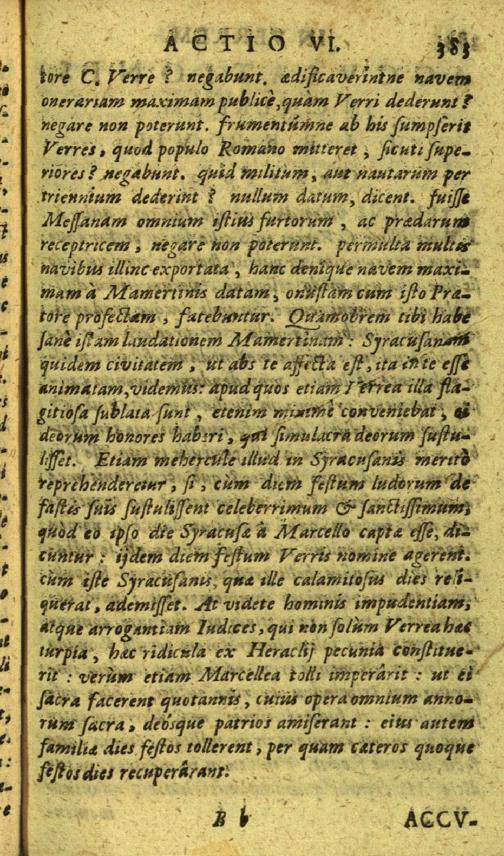 ACTIO VI. 383
tore C. Verre ? negabunt. ædificaverintne navem
onerariam maximam publicè, quam Verri dederunt ?
negare non poterunt. frumentúmne ab his sumpserit
Verres, quod populo Romano mitteret, sicuti supe-
riores ? negabunt. quid militum, aut nautarum per
triennium dederint ? nullum datum, dicent. fuisse
Messanam omnium istius furtorum, ac prædarum
receptricem, negare non poterunt. permulta multis
navibus illinc exportata, hanc denique navem maxi-
mam à Mamertinis datam, onustam cum isto Præ-
tore profectam, fatebuntur. Quamobrem tibi habe
sanè istam laudationem Mamertinam: Syracusanam
quidem civitatem, ut abs te affecta est, ita in te esse
animatam, videmus: apud quos etiam Verrea illa fla-
gitiosa sublata sunt, etenim minimè conveniebat, ei
deorum honores haberi, qui simulacra deorum sustu-
lisset. Etiam mehercule illud in Syracusanis meritò
reprehenderetur, si, cùm diem festum ludorum de
fastis suis sustulissent celeberrimum & sanctissimum,
quòd eo ipso die Syracusæ à Marcello captæ esse, di-
cuntur: ijdem diem festum Verris nomine agerent.
cùm iste Syracusanis, quæ ille calamitosus dies reli-
querat, ademisset. At videte hominis impudentiam,
atque arrogantiam Iudices, qui non solùm Verrea hæc
turpia, hæc ridicula ex Heraclij pecunia constitue-
rit: verùm etiam Marcellea tolli imperârit: ut ei
sacra facerent quotannis, cuius opera omnium anno-
rum sacra, deósque patrios amiserant: eius autem
familiæ dies festos tollerent, per quam cæteros quoque
festos dies recuperârant.
B b ACCV-